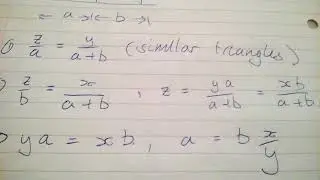 ← a → ← b →
① z/a = y/(a+b) (similar triangles)
z/b = x/(a+b) , z = ya/(a+b) = xb/(a+b)
ya = xb , a = b x/y